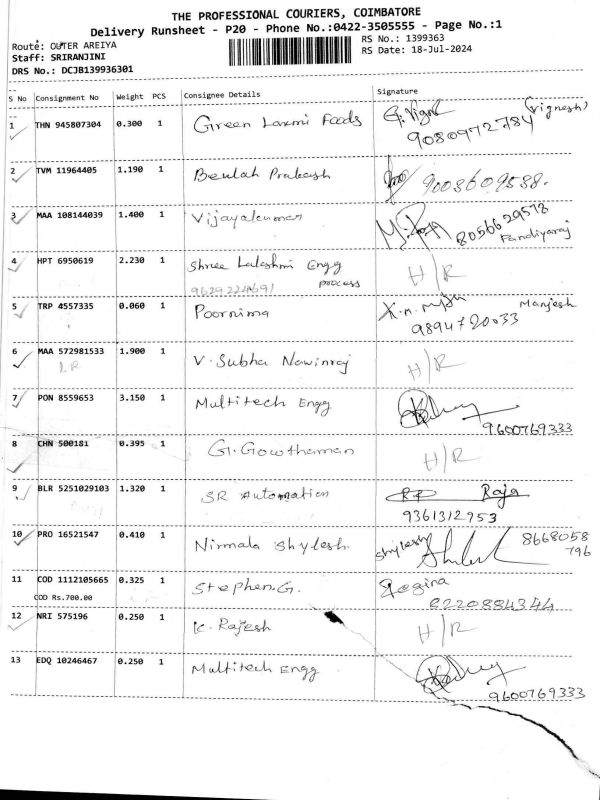 THE PROFESSIONAL COURIERS, COIMBATORE
Delivery Runsheet - P20 - Phone No.:0422-3505555 - Page No.:1
Route: OUTER AREIYA
RS No.: 1399363
Staff: SRIRANJINI
RS Date: 18-Jul-2024
DRS No.: DCJB139936301
S No Consignment No Weight PCS Consignee Details Signature
1 THN 945807304 0.300 1 Green Laxmi Foods G. Vign (Vignesh)
9080972784
2 TVM 11964405 1.190 1 Beulah Prakash 9003609538.
3 MAA 108144039 1.400 1 Vijayakumar 8056629578
Pandiyaraj
4 HPT 6950619 2.230 1 Shree Lakshmi Engg H/R
9629224691 process
5 TRP 4557335 0.060 1 Poornima Manjesh
9894720033
6 MAA 572981533 1.900 1 V. Subha Nawinraj H/R
7 PON 8559653 3.150 1 Multitech Engg
9600769333
8 CHN 500181 0.395 1 G. Gowthaman H/R
9 BLR 5251029103 1.320 1 SR Automation Raja
9361312953
10 PRO 16521547 0.410 1 Nirmala Shylesh. Shylesh 8668058
796
11 COD 1112105665 0.325 1 Stephen.G. Regina
COD Rs.700.00 8220884344
12 NRI 575196 0.250 1 K. Rajesh H/R
13 EDQ 10246467 0.250 1 Multitech Engg
9600769333